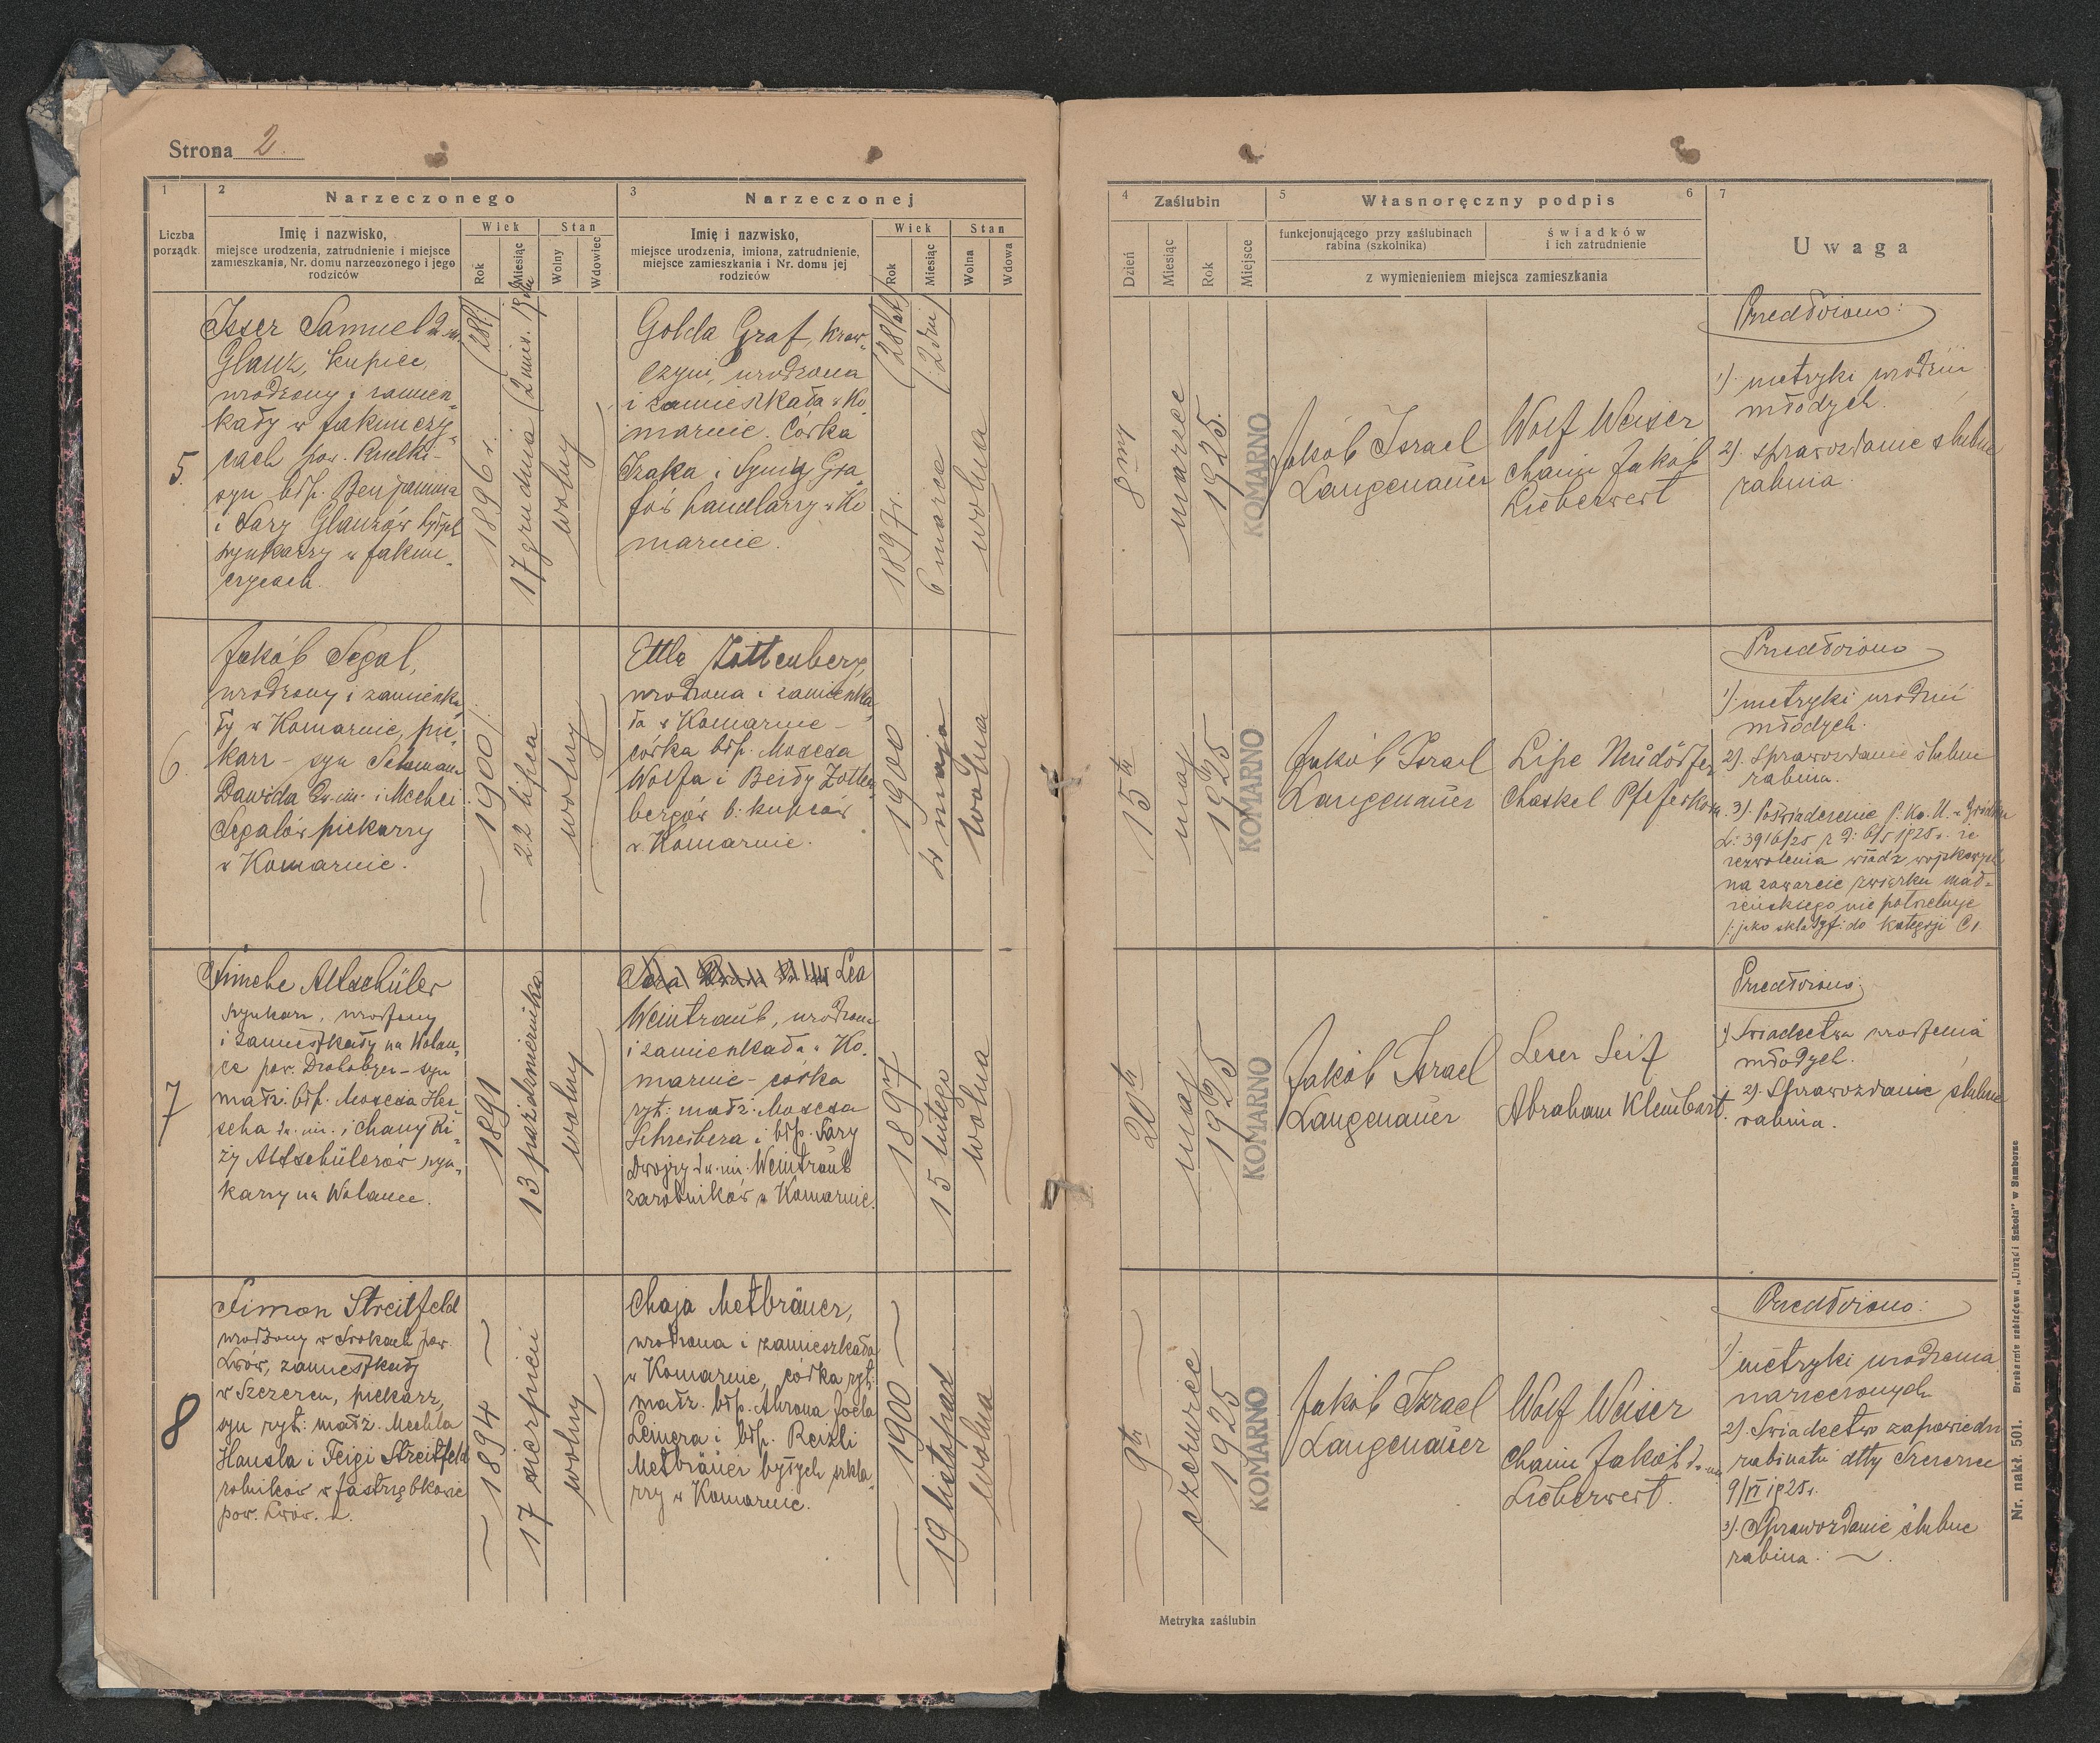 Strona 2.
1
2
Narzeczonego
3
Narzeczonej
Liczba
porządk.
Imię i nazwisko,
miejsce urodzenia, zatrudnienie i miejsce
zamieszkania, Nr. domu narzeczonego i jego
rodziców
Wiek
Stan
Rok
Miesiąc
Wolny
Wdowiec
Imię i nazwisko,
miejsce urodzenia, imiona, zatrudnienie,
miejsce zamieszkania i Nr. domu jej
rodziców
Wiek
Stan
Rok
Miesiąc
Wolna
Wdowa
4
Zaślubin
5
Własnoręczny podpis
6
7
Dzień
Miesiąc
Rok
Miejsce
funkcjonującego przy zaślubinach
rabina (szkolnika)
świadków
i ich zatrudnienie
z wymienieniem miejsca zamieszkania
Uwaga
5.
Isser Samuel
Glanz, kupiec,
urodzony i zamiesz-
kały w Jakimczy-
cach pow. Rudki-
syn błp. Benjamina
i Sary Glanzów byłych
szynkarzy w Jakim-
czycach.
1896 r.
17 grudnia
wolny
Golda Graf, kraw-
czyni, urodzona
i zamieszkała w Ko
marnie. Córka
Izaka i Symy Gra-
fów handlarzy w Ko
marnie.
1897 r.
6 marca
wolna
8my
marzec
1925.
KOMARNO
Jakób Israel
Langenauer
Wolf Weiser
Chaim Jakób
Lieberwert
Przedłożono:
1). metryki urodzin
młodych.
2). sprawozdanie ślubne
rabina.
6.
Jakób Segal,
urodzony i zamieszka
ły w Komarnie, pie-
karz - syn
Dawida i Mechci
Segalów piekarzy
w Komarnie.
1900
22 lipca
wolny
Ettla Zottenberg,
urodzona i zamieszka-
ła w Komarnie -
córka błp. Mosesa
Wolfa i Beidy Zotten-
bergów b: kupców
w Komarnie.
1900
4 maja
wolna
15ty
maj
1925
KOMARNO
Jakób Israel
Langenauer
Lipe
Chaskel Pfeferkorn
Przedłożono
1). metryki urodzin
młodych.
2). sprawozdanie ślubne
rabina.
3). Poświadczenie
że
zezwolenia władz wojskowych
na zawarcie związku mał-
żeńskiego nie potrzebuje
jako sklasyf: do kategorji C1
7
Simche Altschüler
szynkarz, urodzony
i zamieszkały na Wolan-
ce pow. Drohobycz - syn
małż: błp. Mosesa Her-
scha i Chany Ri-
zy Altschülerów szyn-
karzy na Wolance.
1891
13 października
wolny
Lea
Weintraub, urodzona
i zamieszkała w Ko-
marnie - córka
ryt: małż: Mosesa
Schreibera i błp. Sary
Dwojry Weintraub
zarobników w Komarnie.
1897
15 lutego
wolna
20ty
maj
1925
KOMARNO
Jakób Israel
Langenauer
Leser Seif
Abraham Kleinbart.
Przedłożono:
1) Świadectwa urodzenia
młodych.
2). Sprawozdanie ślubne
rabina.
8
Simon Streitfeld
urodzony w Srokach pow.
Lwów, zamieszkały
w Szczercu, piekarz,
syn ryt: małż. Mechla
i Feigi Streitfeld
rolników w Jastrzębkowie
pow. Lwów.
1894
17 sierpnień
wolny
Chaja Metbräuer,
urodzona i zamieszkała
w Komarnie, córka ryt:
małż. błp. Ahrona Joela
Leinera i błp. Reizli
Metbräuer byłych szkla-
rzy w Komarnie.
1900
19 listopad
wolna
9ty
czerwiec
1925
KOMARNO
Jakób Izrael
Langenauer
Wolf Weiser
Chaim Jakób
Lieberwert.
Przedłożono:
1) metryki urodzenia
narzeczonych
2). Świadectwo zapowiedni
rabinatu dtto Szczerzec
9/VI 1925 r.
3). Sprawozdanie ślubne
rabina.
Metryka zaślubin
Nr. nakł. 501.
Drukarnia nakładowa „Urząd i Szkoła” w Samborze